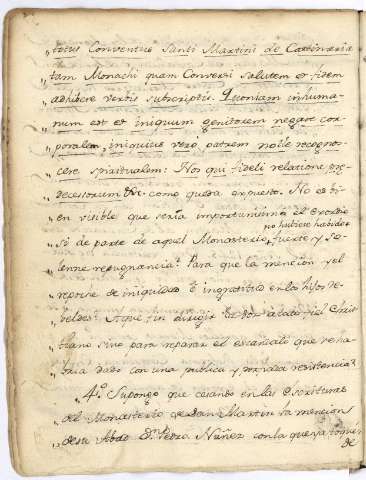 „ totus Conventus Santi Martini de Castinaria
„ tam Monachi quam Conversi salutem et fidem
„ adhibere verbis subscriptis. Quoniam inhuma-
„ num est et iniquum genitorem negare cor-
„ poralem, iniquius vero patrem nolle recognos-
„ cere spiritualem: Nos qui fideli relatione pre-
„ decessorum &c. como queda expuesto. No es bi-
„ en visible que seria importunisimo el exordio
no hubiere habido
„ si de parte de aquel Monasterio fuerte y so-
„ lenne repugnancia? Para que la mencion y el
„ reprose de iniquidad é ingratitud en los hijos re-
„ beldes? A que fin dirigir a todo fiel Chris
„ tiano sino para reparar el escandalo que se ha-
„ bria dado con una publica y porfiada resistencia?
„ 4.º Supongo que cesando en las Escrituras
„ del Monasterio de San Martin la mencion
„ de su Abad D.n Pedro Nuñez con la que ya
de